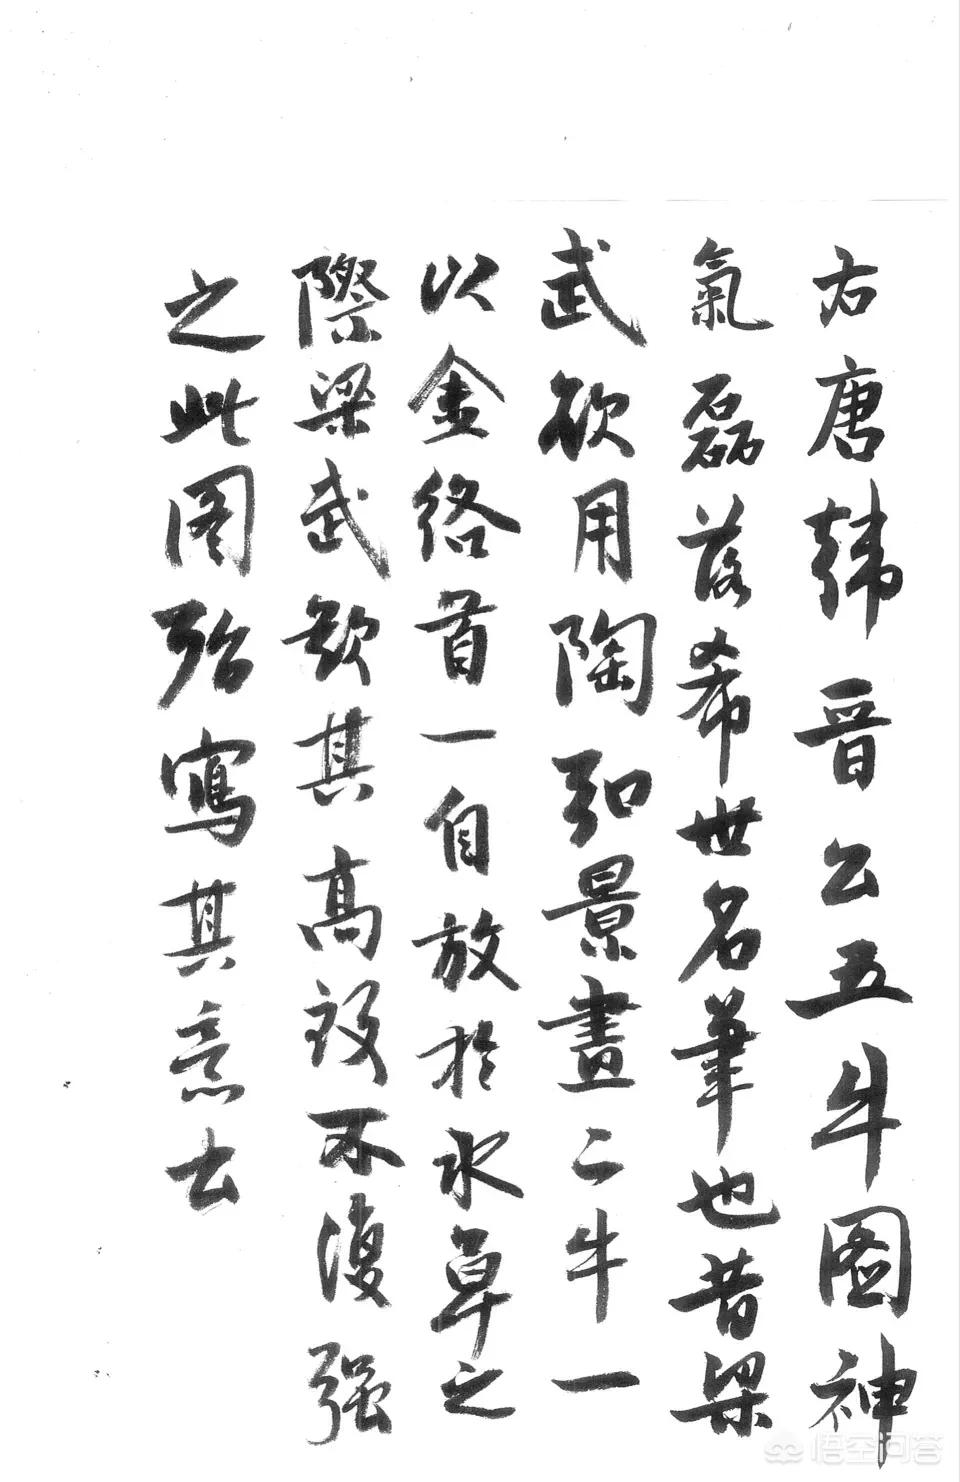 右唐韓晋公五牛圖神
氣磊落希世名筆也昔梁
武欲用陶弘景畫二牛一
以金络首一自放於水草之
際梁武歎其高致不復强
之此图殆寫其意云
悟空问答